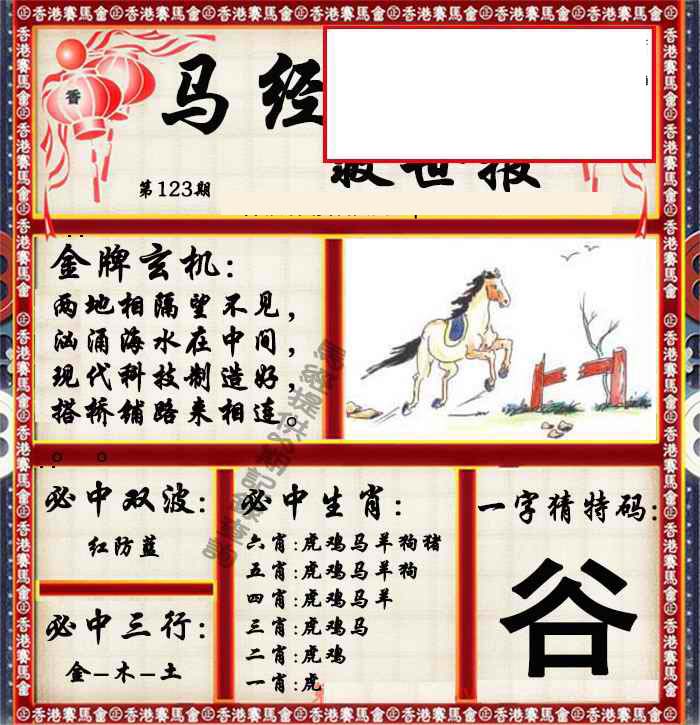 香港賽馬會
香
马经
救世报
第123期
金牌玄机:
两地相隔望不见，
汹涌海水在中间，
现代科技制造好，
搭桥铺路来相连。
必中双波:
红防蓝
必中三行:
金–木–土
必中生肖:
六肖:虎鸡马羊狗猪
五肖:虎鸡马羊狗
四肖:虎鸡马羊
三肖:虎鸡马
二肖:虎鸡
一肖:虎
一字猜特码:
谷